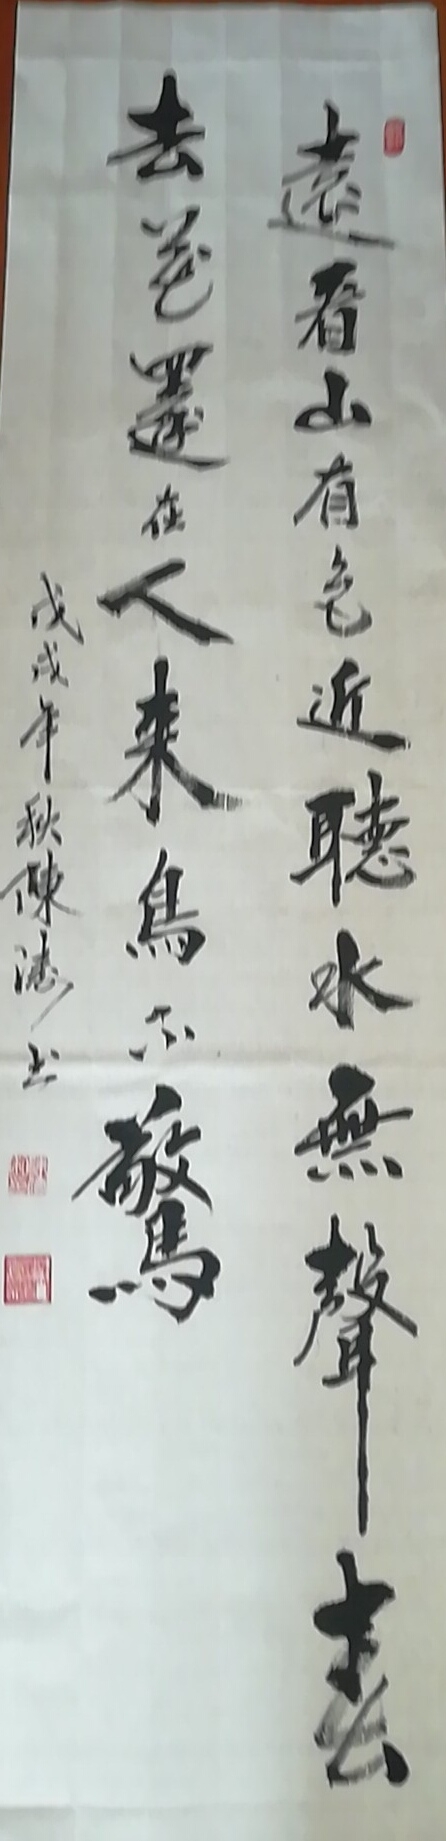 遠看山有色近聽水無聲春
去花還在人來鳥不驚
戊戌年秋陳书